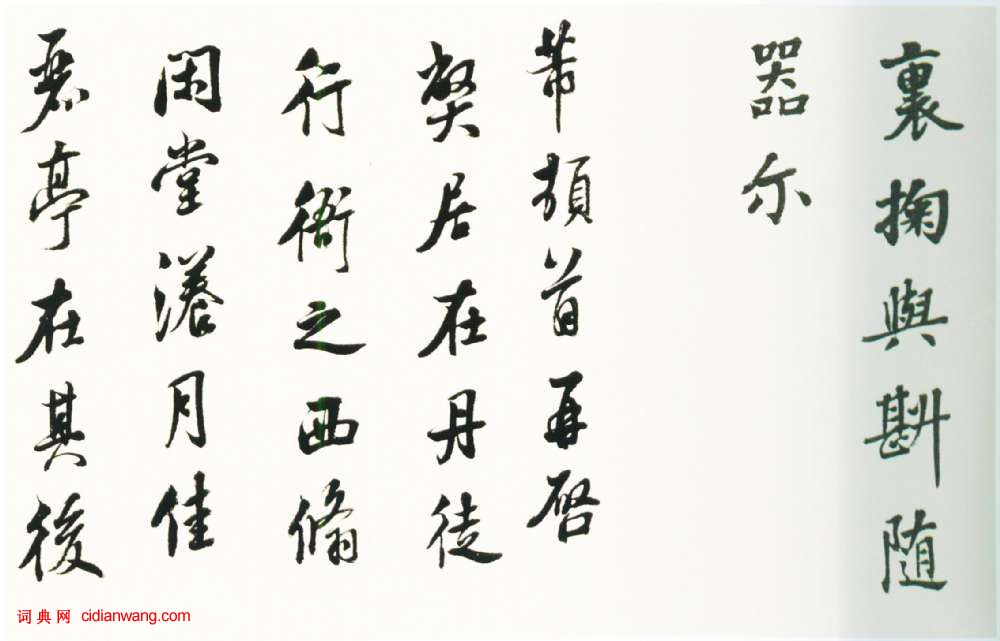 裏掬與斟随
器尔
芾頓首再啓
弊居在丹徒
行衙之西脩
閑堂漾月佳
麗亭在其後
词典网 cidianwang.com